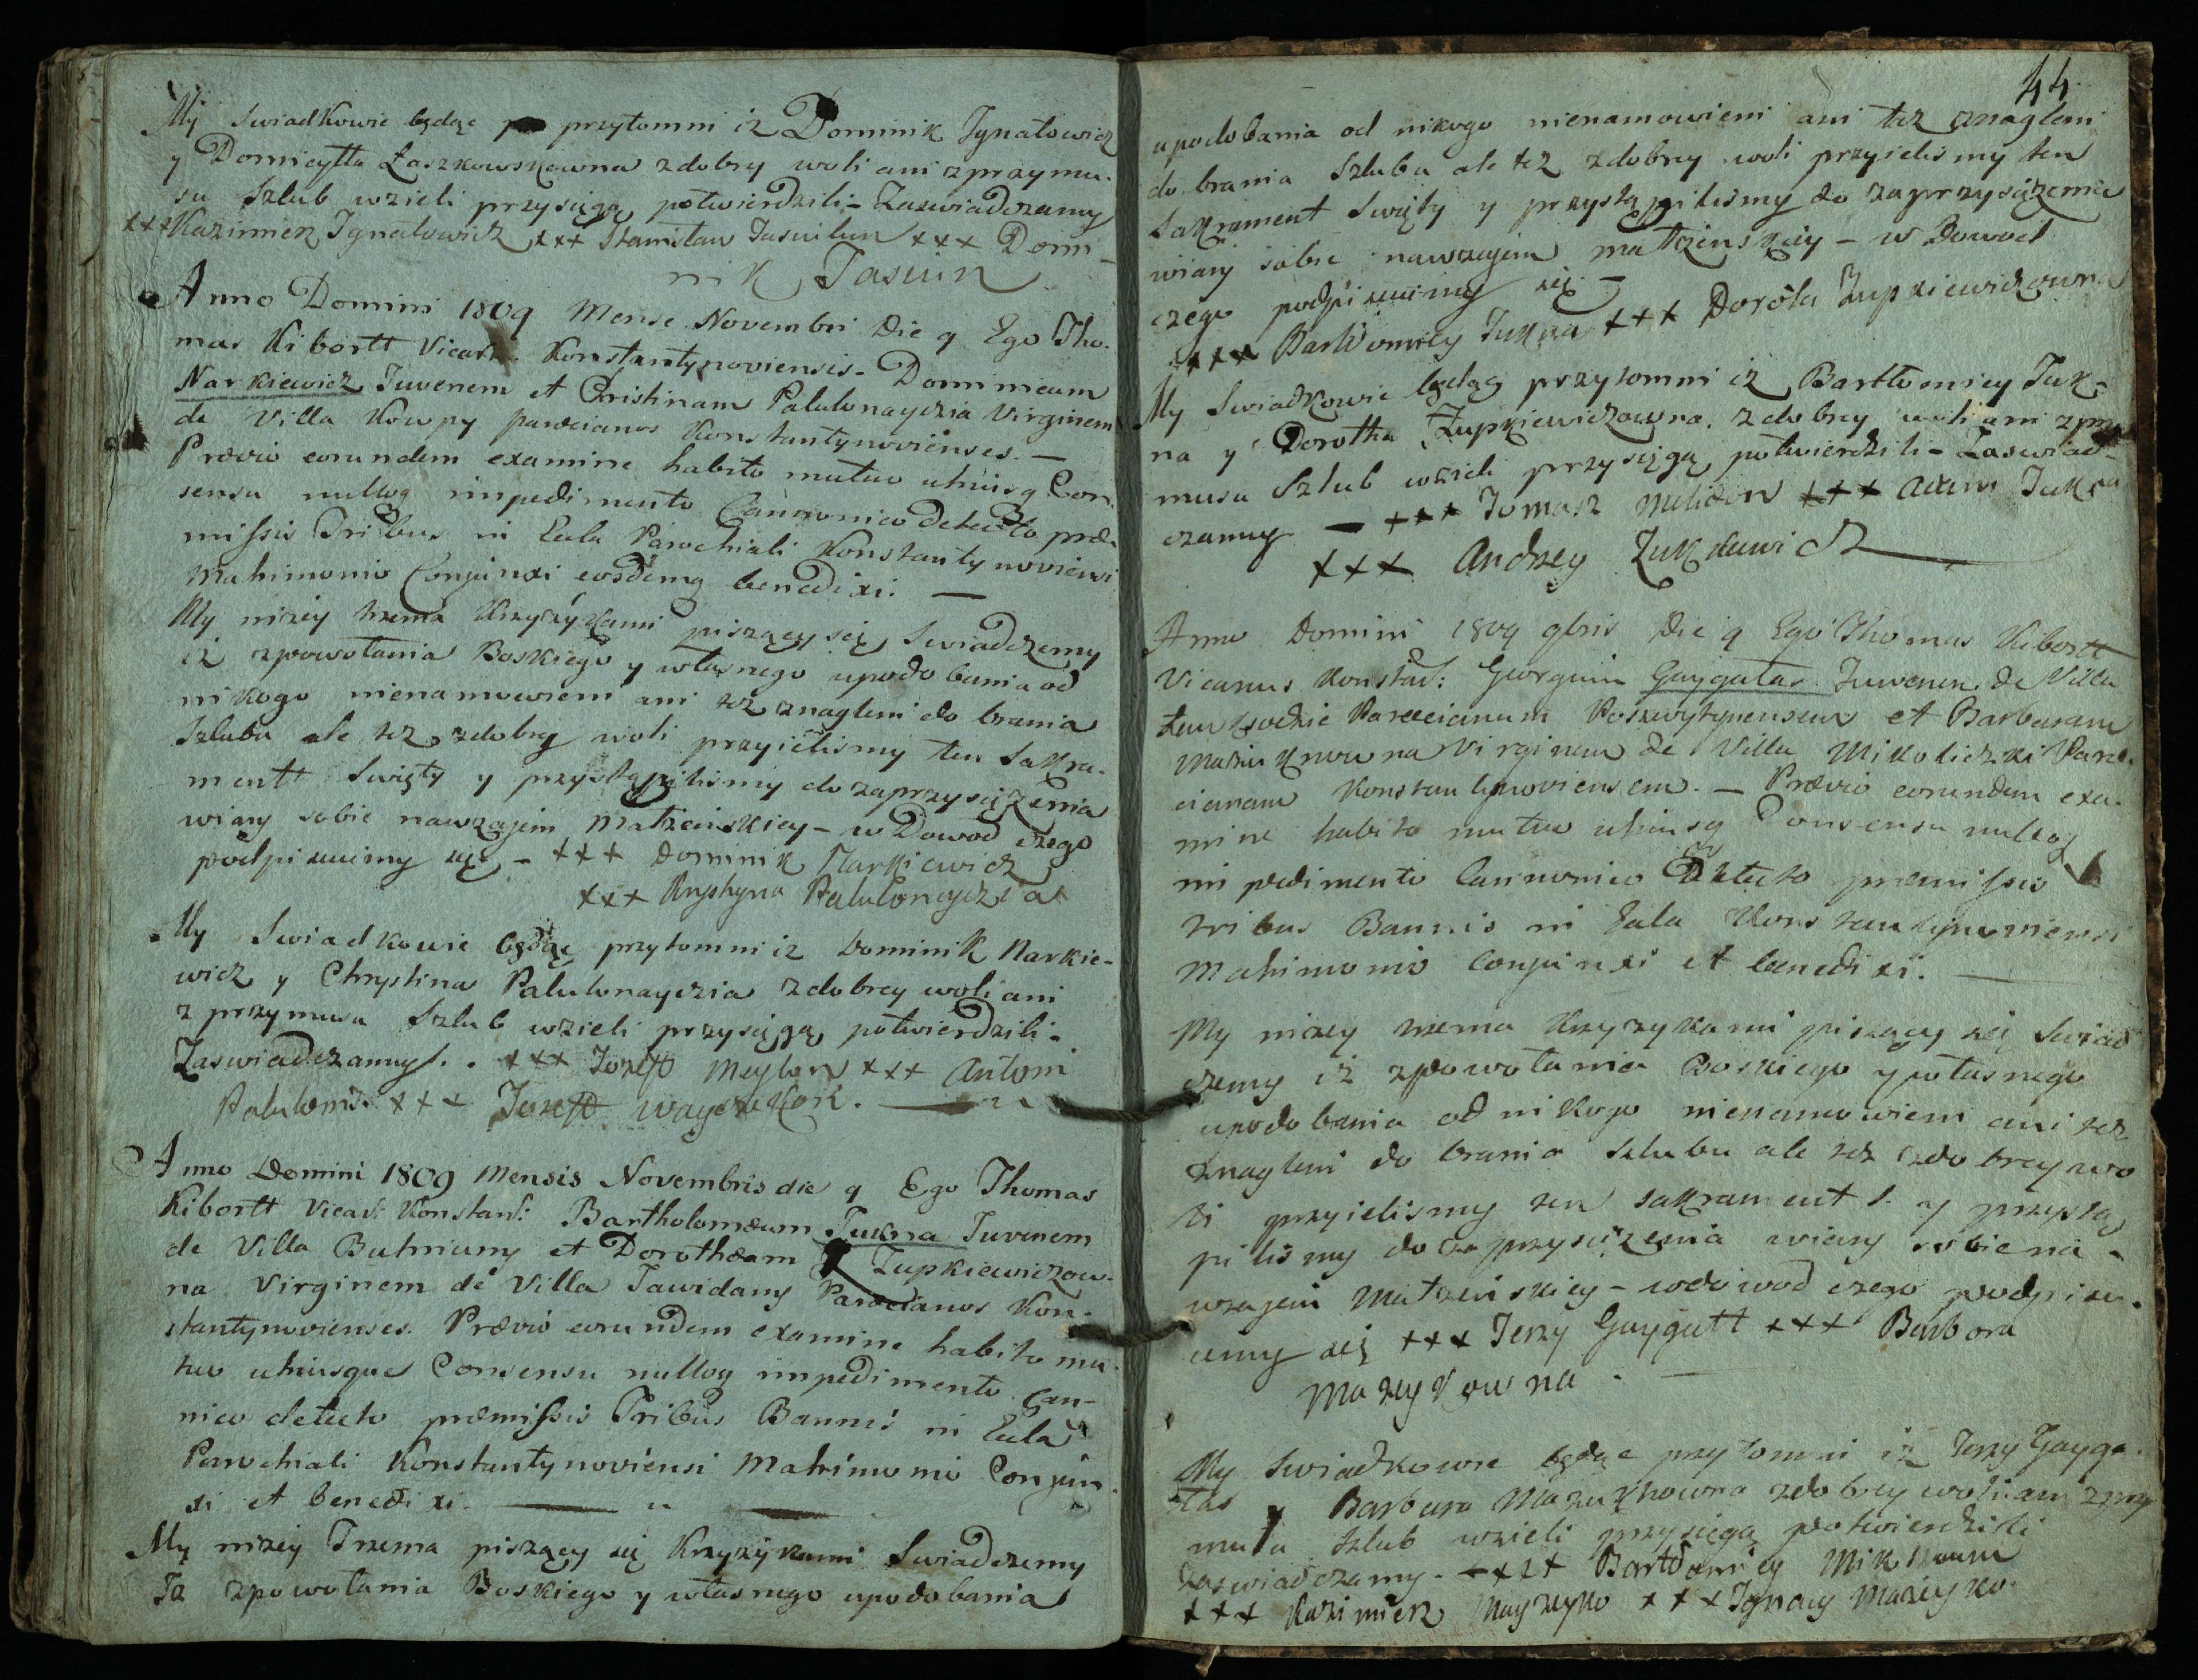 My Swiadkowie będąc przytomni iz Dominik Jgnatowicz
y Domicylla Łaszkowskowna z dobry woli ani z przymu-
su Szlub wzieli przysięgą potwierdzili - Zaswiadczamy
+++ Kazimierz Jgnatowicz +++ Stanisław +++ Domi-
nik Jaswin
Anno Domini 1809 Mense Novembri Die 9 Ego Tho-
mas Kibortt Konstantynoviensis. Dominicum
Narkiewicz Juvenem et Christinam Palulonayczia Virginem
de Villa parocianos Konstantynovienses. —
Prævio eorundem examine habito mutuo utriusq Con-
sensu nulloq impedimento Cannonico detecto, præ-
missis Tribus in Ecla Parochiali Konstantynoviensi
Matrimonio Conjunxi eosdemq benedixi. —
My nizey trzema Krzyżykami piszący się Swiadczemy
iż z powołania Boskiego y własnego upodobania od
nikogo nienamowieni ani też znagleni do brania
Szlubu ale też z dobrey woli przyieliśmy ten Sakra-
mentt Swięty y przystąpiliśmy do zaprzysiężenia
wiary sobie nawzajem Małżeńskiey - w Dowod czego
podpisuiemy się - +++ Dominik Narkiewicz
+++ Krystyna Palulonayczia
My Swiadkowie będąc przytomni iz Dominik Narkie-
wicz y Chrystina Palulonayczia z dobrey woli ani
z przymusu Szlub wzieli przysięgą potwierdzili -
Zaswiadczamy. +++ Jozeff Meylon +++ Antoni
+++ Jozeff
Anno Domini 1809 Mensis Novembris die 9 Ego Thomas
Kibortt Vicar: Konstant: Bartholomæum Jukna Juvenem
de Villa Butniuny et Dorotheam Zupkiewiczow-
na Virginem de Villa Jawidany Parocianos Kon-
stantynovienses. Prævio eorundem examine habito mu-
tuo utriusque Consensu nulloq impedimento Can-
nico detecto præmissis Tribus Bannis in Ecla
Parochiali Konstantynoviensi Matrimonio Conjun-
xi et benedixi. —
My nizey Trzema piszący się Krzyżykami Swiadczemy
Iz z powołania Boskiego y własnego upodobania
44
upodobania od nikogo nienamowieni ani też znagleni
do brania Szlubu ale też z dobrey woli przyieliśmy ten
Sakrament Swięty y przystąpiliśmy do zaprzysiężenia
wiary sobie nawzajem małżeńskiey - w Dowod
czego podpisuiemy się -
+++ Bartłomiey Jukna +++ Dorota Zupkiewiczowna
My Swiadkowie będąc przytomni iż Bartłomiey Juk-
na y Dorotha Zupkiewiczowna z dobrey woli ani z przy
musu Szlub wzieli przysięgą potwierdzili - Zaswiad-
czamy — +++ Tomasz +++ Adam Jukna
+++ Andrzey
Anno Domini 1809 9bris Die 9 Ego Thomas Kibortt
Vicarius Konstant: Georgium Gaygałas Juvenem de Villa
Parocianum et Barbaram
Virginem de Villa Mikoliczki Paro-
cianam Konstantynoviensem. — Prævio eorundem exa-
mine habito mutuo utriusq Consensu nulloq
impedimento Cannonico Detecto præmissis
tribus Bannis in Ecla Konstantynoviensi
Matrimonio Conjunxi et benedixi. —
My nizey trzema Krzyżykami piszący się Swiad
czemy iż z powołania Boskiego y własnego
upodobania od nikogo nienamowieni ani też
znagleni do brania Szlubu ale też z dobrey wo
li przyieliśmy ten Sakrament S. y przystą
piliśmy do zaprzysiężenia wiary sobie na-
wzajem Małżeńskiey - w dowod czego podpisu-
iemy się +++ Jerzy Gaygałł +++ Barbora
Mazeykowna. —
My Swiadkowie będąc przytomni iż Jerzy Gayga-
łas y Barbara z dobrey woli ani z przy
musu Szlub wzieli przysięgą potwierdzili
Zaswiadczamy. - +++ Bartłomiey
+++ Kazimierz Mayzeyko +++ Jgnacy Mazeyko